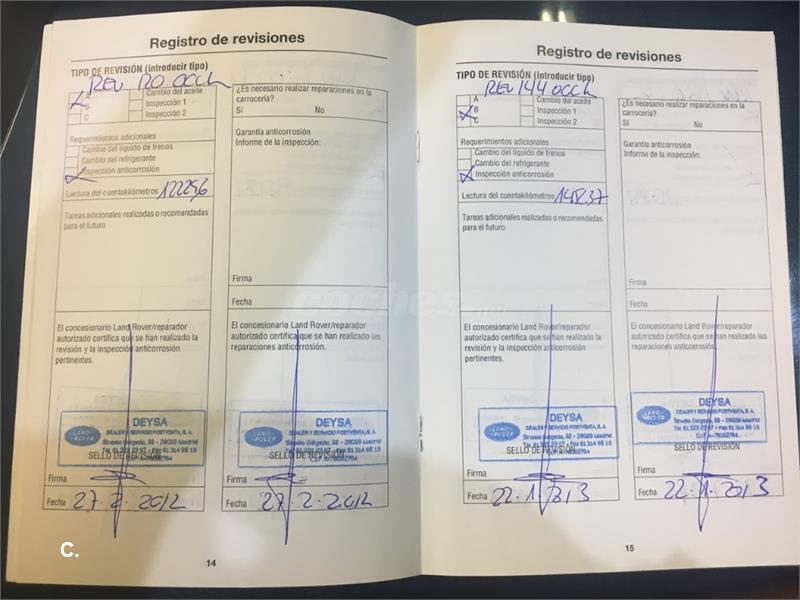 Registro de revisiones
TIPO DE REVISIÓN (introducir tipo)
REV 120.000k
A
B
C
Cambio del aceite
Inspección 1
Inspección 2
Requerimientos adicionales
Cambio del líquido de frenos
Cambio del refrigerante
Inspección anticorrosión
Lectura del cuentakilómetros
Tareas adicionales realizadas o recomendadas
para el futuro
El concesionario Land Rover/reparador
autorizado certifica que se han realizado la
revisión y la inspección anticorrosión
pertinentes.
LAND-
ROVER
DEYSA
DEALER Y SERVICIO POSTVENTA, S.A.
28029 Madrid
SELLO DE REVISIÓN
Firma
Fecha 27-2-2012
¿Es necesario realizar reparaciones en la
carrocería?
Sí No
Garantía anticorrosión
Informe de la inspección:
Firma
Fecha
El concesionario Land Rover/reparador
autorizado certifica que se han realizado las
reparaciones anticorrosión.
LAND-
ROVER
DEYSA
DEALER Y SERVICIO POSTVENTA, S.A.
28029 Madrid
SELLO DE REVISIÓN
Firma
Fecha 27-2-2012
14
Registro de revisiones
TIPO DE REVISIÓN (introducir tipo)
REV 144.000k
A
B
C
Cambio del aceite
Inspección 1
Inspección 2
Requerimientos adicionales
Cambio del líquido de frenos
Cambio del refrigerante
Inspección anticorrosión
Lectura del cuentakilómetros
Tareas adicionales realizadas o recomendadas
para el futuro
El concesionario Land Rover/reparador
autorizado certifica que se han realizado la
revisión y la inspección anticorrosión
pertinentes.
LAND-
ROVER
DEYSA
DEALER Y SERVICIO POSTVENTA, S.A.
28029 Madrid
SELLO DE REVISIÓN
Firma
Fecha 22-1-2013
¿Es necesario realizar reparaciones en la
carrocería?
Sí No
Garantía anticorrosión
Informe de la inspección:
Firma
Fecha
El concesionario Land Rover/reparador
autorizado certifica que se han realizado las
reparaciones anticorrosión.
LAND-
ROVER
DEYSA
DEALER Y SERVICIO POSTVENTA, S.A.
28029 Madrid
SELLO DE REVISIÓN
Firma
Fecha 22-1-2013
15
coches.net
C.